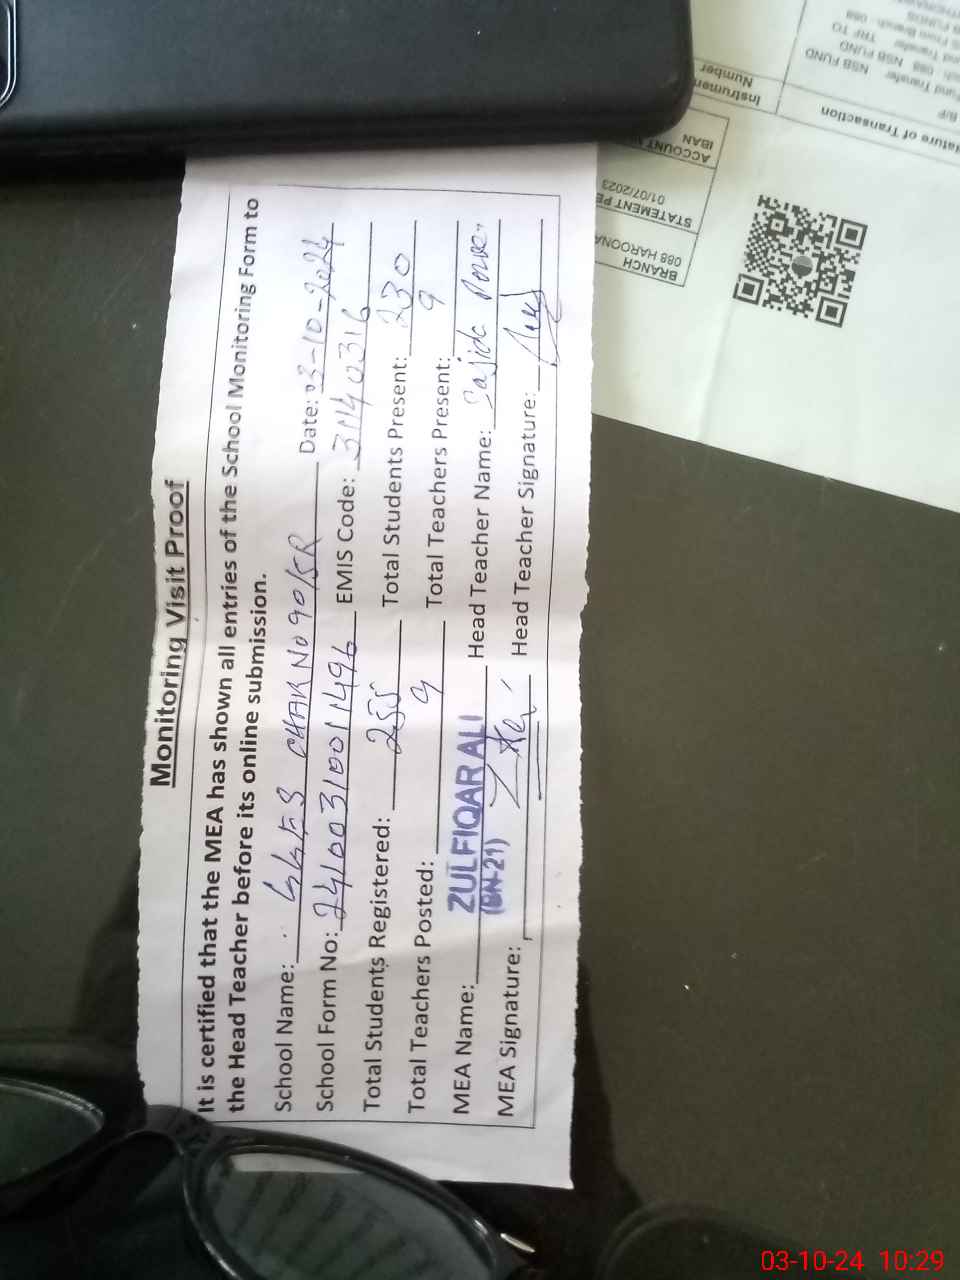 Monitoring Visit Proof
It is certified that the MEA has shown all entries of the School Monitoring Form to
the Head Teacher before its online submission.
School Name: GGES CHAK NO 90/5R Date: 03-10-2024
School Form No: 24100310011496 EMIS Code: 31140316
Total Students Registered: 255 Total Students Present: 230
Total Teachers Posted: 9 Total Teachers Present: 9
MEA Name: ZULFIQAR ALI Head Teacher Name: Sajida
(BN-21)
MEA Signature: Head Teacher Signature:
BRANCH
088 HAROONA
STATEMENT PE
01/07/2023
ACCOUNT
IBAN
Nature of Transaction
Instrument
Number
B/F
Fund Transfer NSB FUND
088 NSB FUND
TRF TO
From Branch - 088
FUNDS
03-10-24 10:29